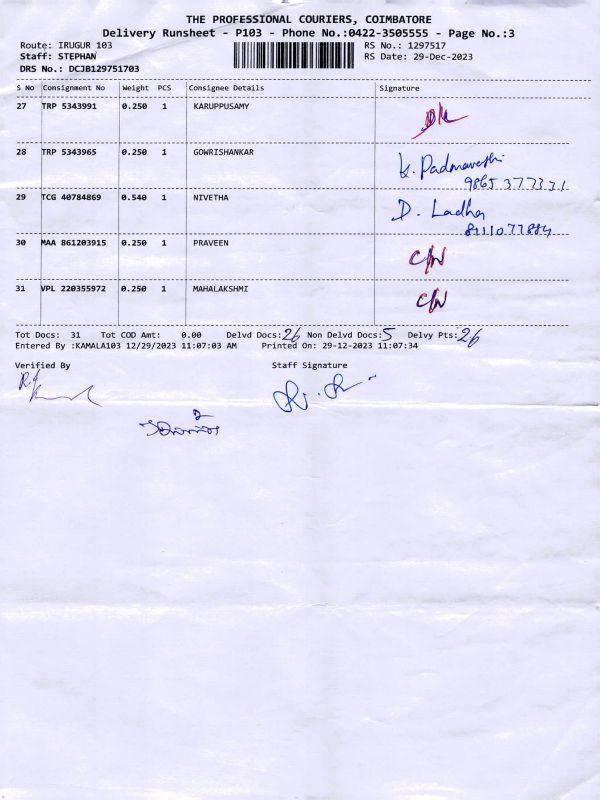 THE PROFESSIONAL COURIERS, COIMBATORE
Delivery Runsheet - P103 - Phone No.:0422-3505555 - Page No.:3
Route: IRUGUR 103 RS No.: 1297517
Staff: STEPHAN RS Date: 29-Dec-2023
DRS No.: DCJB129751703
S No Consignment No Weight PCS Consignee Details Signature
27 TRP 5343991 0.250 1 KARUPPUSAMY
28 TRP 5343965 0.250 1 GOWRISHANKAR K. Padmavathi
9865377331
29 TCG 40784869 0.540 1 NIVETHA D. Ladha
8111077884
30 MAA 861203915 0.250 1 PRAVEEN C/N
31 VPL 220355972 0.250 1 MAHALAKSHMI C/N
Tot Docs: 31 Tot COD Amt: 0.00 Delvd Docs:26 Non Delvd Docs:5 Delvy Pts:26
Entered By :KAMALA103 12/29/2023 11:07:03 AM Printed On: 29-12-2023 11:07:34
Verified By Staff Signature